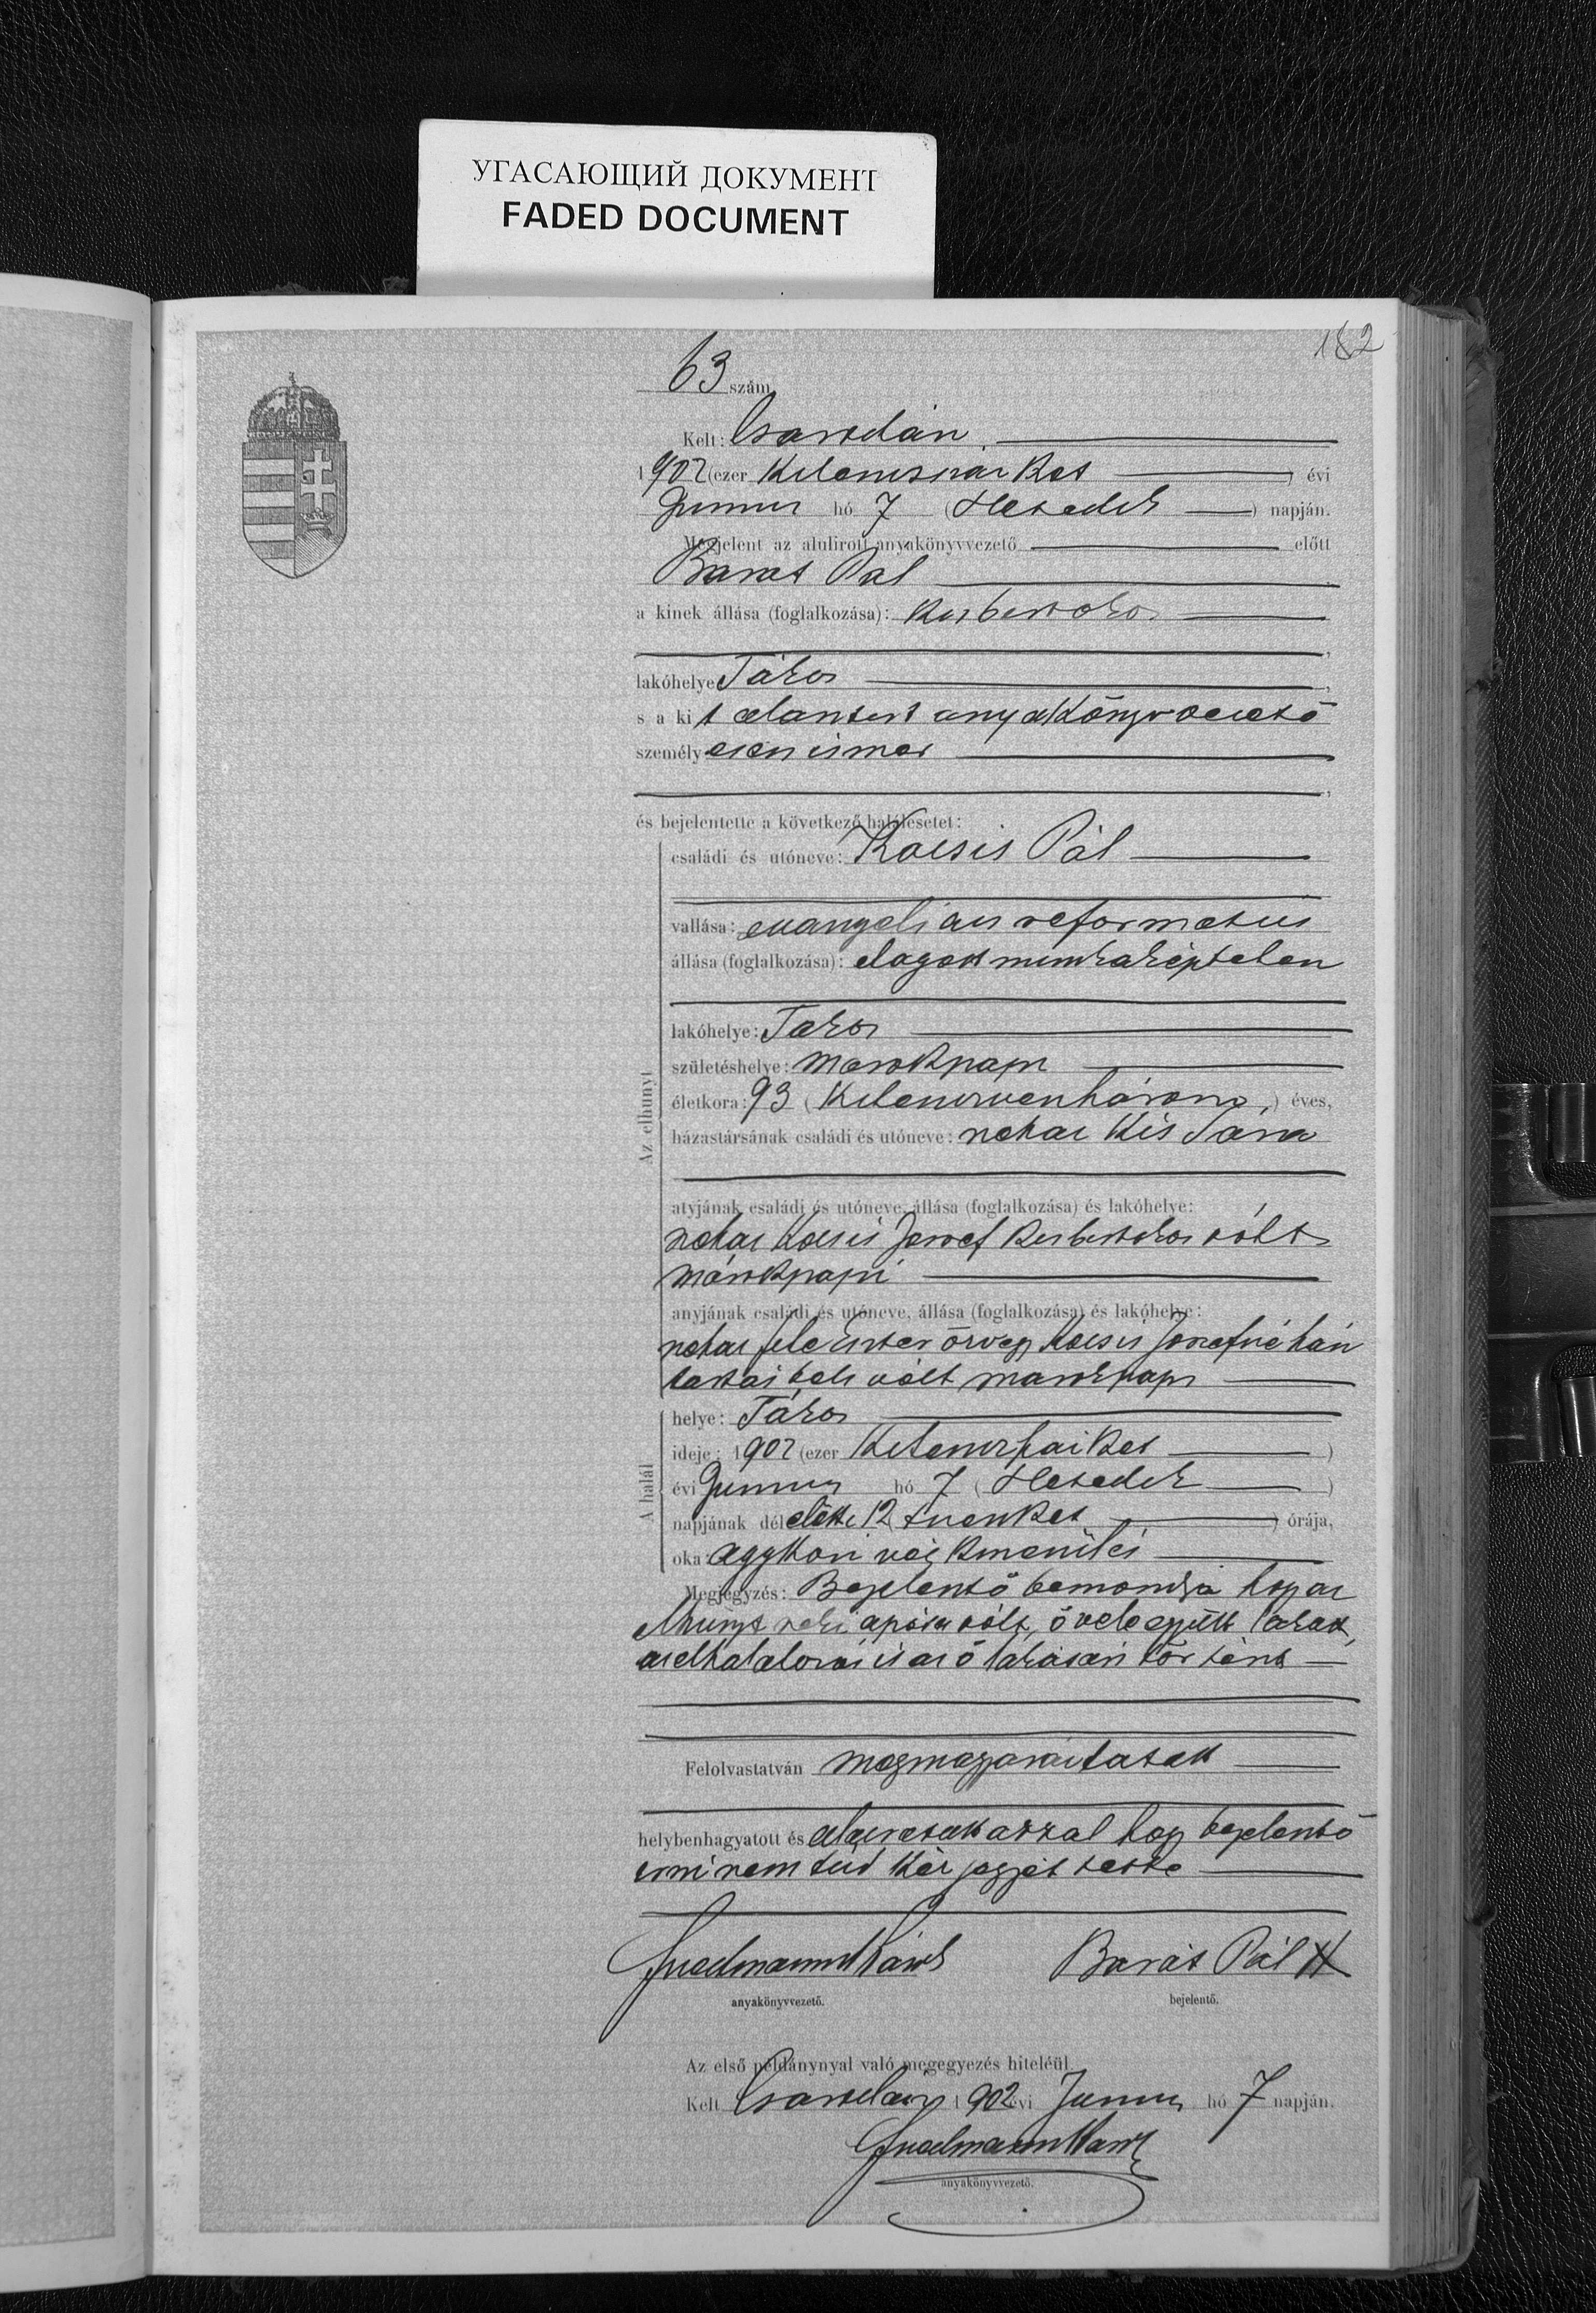 УГАСАЮЩИЙ ДОКУМЕНТ
FADED DOCUMENT
182
63 szám
Kelt: Csarodán
1902 (ezer kilenczszáz két) évi
Junius hó 7 (Hetedik) napján.
Megjelent az alulirott anyakönyvvezető előtt
Barát Pál
a kinek állása (foglalkozása): kisbirtokos
lakóhelye Tákos
s a ki t alantirt anyakönyvvezető
személy esen ismer
és bejelentette a következő halálesetet:
Az elhunyt
családi és utóneve: Kocsis Pál
vallása: evangelias reformatus
állása (foglalkozása): elagott munkaképtelen
lakóhelye: Takos
születéshelye: Marokpapi
életkora: 93 (kilenczvenhárom) éves,
házastársának családi és utóneve: néhai Kis Sára
atyjának családi és utóneve, állása (foglalkozása) és lakóhelye:
néhai Kocsis Jozsef kisbirtokos vólt
márokpapi
anyjának családi és utóneve, állása (foglalkozása) és lakóhelye:
néhai Eszter özvegy Kocsis Jozsefné ház
tartásbeli vólt marokpapi
A halál
helye: Tákos
ideje: 1902 (ezer kilenczszáz két)
évi Junius hó 7 (Hetedik)
napjának dél előtti 12 (tizenkét) órája,
oka: aggkori végkimerülés
Megjegyzés: Bejelentő bemondja hogy az
elhunyt neki apósa vólt, ő vele együtt lakott,
az elhalálozás is az ő lakásán történt
Felolvastatván megmagyaráztatott
helybenhagyatott és aláiratott azzal hogy bejelentő
irni nem tud kézjegyét tette
anyakönyvvezető.
Barát Pál
bejelentő.
Az első példánynyal való megegyezés hiteléül
Kelt Csarodán 1902 évi Junius hó 7 napján.
anyakönyvvezető.